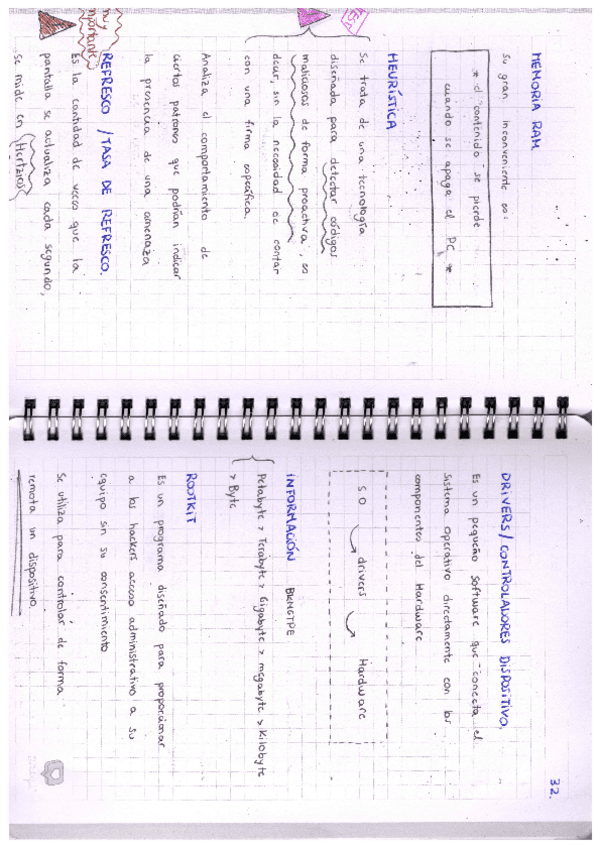 MEMORIA RAM
Su gran inconveniente es:
* el contenido se pierde
cuando se apaga el PC *
HEURÍSTICA
Se trata de una tecnología
diseñada para detectar códigos
maliciosos de forma proactiva, es
decir, sin la necesidad de contar
con una firma específica.
Analiza el comportamiento de
ciertos patrones que podrían indicar
la presencia de una amenaza
muy
importante
REFRESCO / TASA DE REFRESCO.
Es la cantidad de veces que la
pantalla se actualiza cada segundo,
se mide en (Hertzios)
32.
DRIVERS/ CONTROLADORES DISPOSITIVO.
Es un pequeño software que conecta el
Sistema Operativo directamente con los
componentes del Hardware
S.O drivers Hardware
INFORMACIÓN BKMGTPE
Petabyte > Terabyte > Gigabyte > megabyte > Kilobyte
> Byte
ROOTKIT
Es un programa diseñado para proporcionar
a los hackers acceso administrativo a su
equipo sin su consentimiento
Se utiliza para controlar de forma
remota un dispositivo.